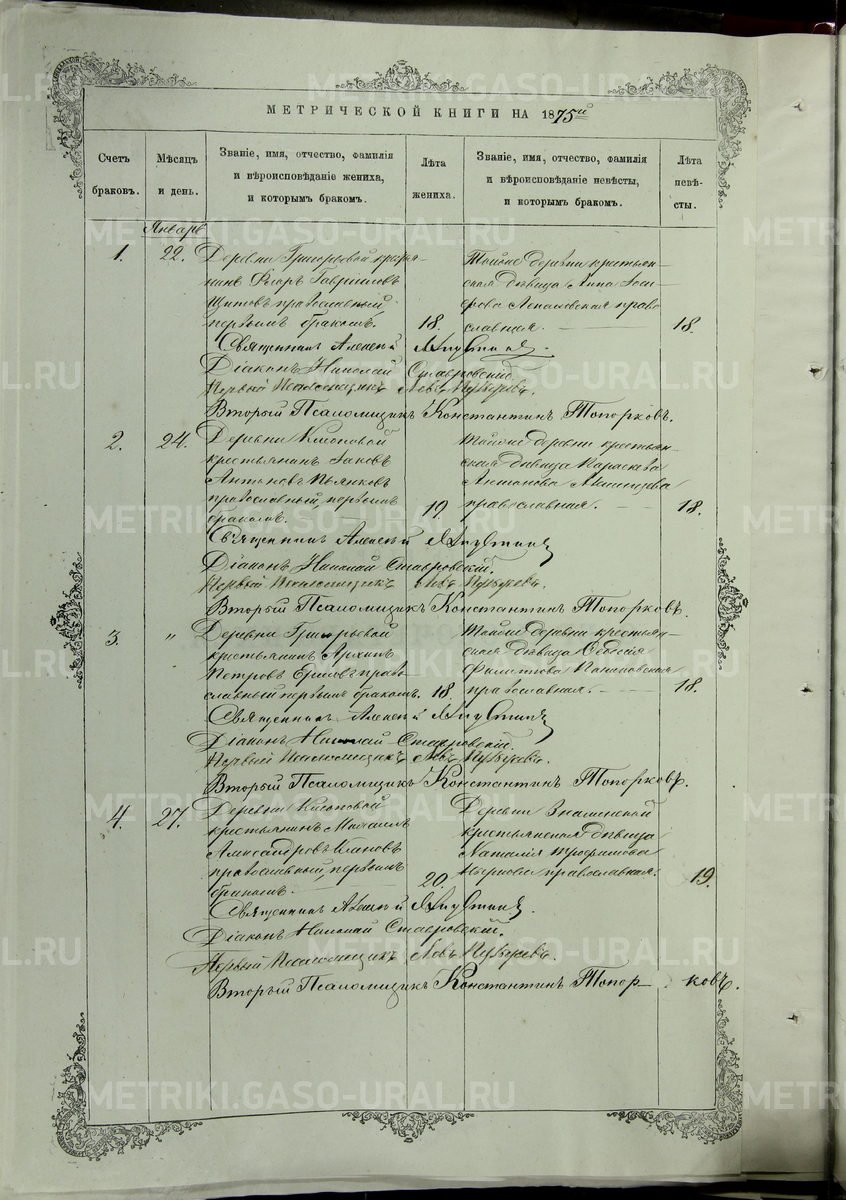 МЕТРИЧЕСКОЙ КНИГИ НА 1875й
Счетъ браковъ.
Мѣсяцъ и день.
Званіе, имя, отчество, фамилія
и вѣроисповѣданіе жениха,
и которымъ бракомъ.
Лѣта жениха.
Званіе, имя, отчество, фамилія
и вѣроисповѣданіе невѣсты,
и которымъ бракомъ.
Лѣта невѣ-
сты.
Январь
1. 22. Деревни Григорьевой кресть-
янинъ Гавриловъ
Щиповъ православный,
первымъ бракомъ. 18.
Тойже деревни крестьян-
ская дѣвица Анна Оси-
пова право
славная. 18.
Священникъ Алексей
Діаконъ Николай Ставровскій.
Первый Псаломщикъ Левъ
Вторый Псаломщикъ Константинъ Топорковъ.
2. 24. Деревни
крестьянинъ Іаковъ
Антоновъ Пьянковъ
православный, первымъ
бракомъ. 19.
Тойже деревни крестьян-
ская дѣвица Параскева
Антонова
православная. 18.
Священникъ Алексей
Діаконъ Николай Ставровскій.
Первый Псаломщикъ Левъ
Вторый Псаломщикъ Константинъ Топорковъ.
3. " Деревни Григорьевой
крестьянинъ Архипъ
Петровъ право
славный первымъ бракомъ. 18.
Тойже деревни крестьян-
ская дѣвица Ѳедосія
Филиппова
православная. 18.
Священникъ Алексей
Діаконъ Николай Ставровскій.
Первый Псаломщикъ Левъ
Вторый Псаломщикъ Константинъ Топорковъ.
4. 27. Деревни
крестьянинъ Михаилъ
Александровъ
православный, первымъ
бракомъ. 20.
Деревни Знаменской
крестьянская дѣвица
Наталія Трофимова
православная. 19.
Священникъ Алексей
Діаконъ Николай Ставровскій.
Первый Псаломщикъ Левъ
Вторый Псаломщикъ Константинъ Топорковъ.
METRIKI.GASO-URAL.RU